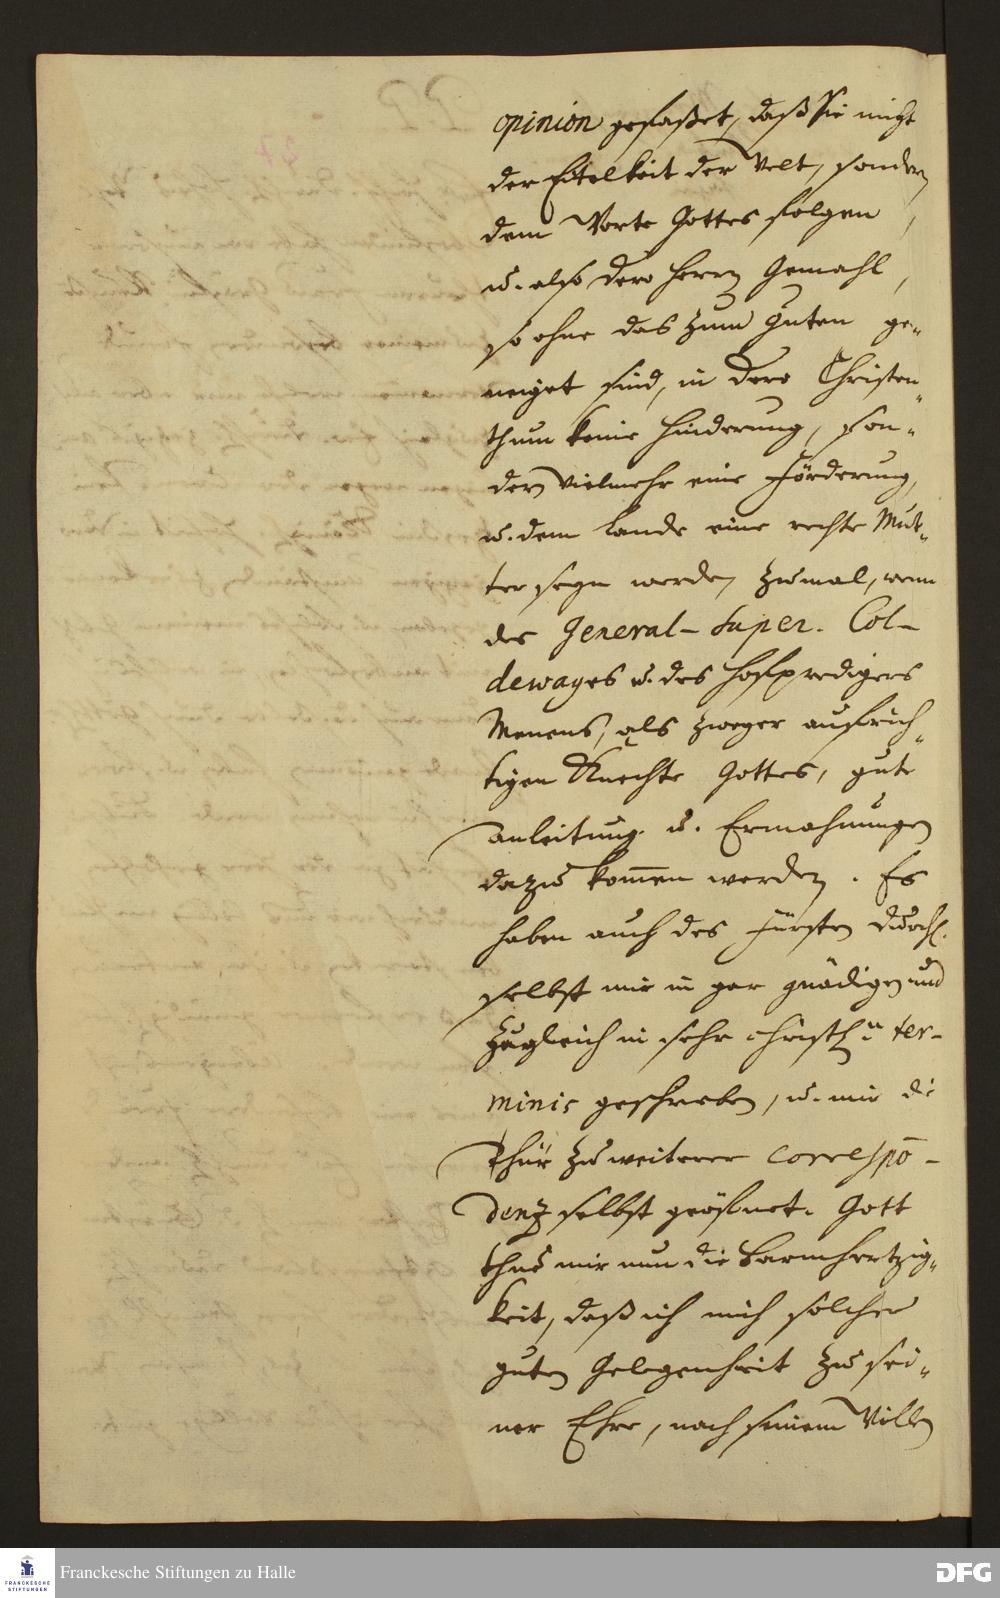 opinion gefaßet, daß sie nicht
der Eitelkeit der Welt, sondern
dem Worte Gottes folgen,
u. also dero Herrn Gemahl,
so ohne das zum Guten ge-
neiget sind, in dero Christen-
thum keine Hinderung, son-
dern vielmehr eine Förderung,
u. dem Lande eine rechte Mut-
ter seyn werden, zumal, wenn
des General-Super. Col-
dewages u. des Hofpredigers
Menens, als zweyer aufrich-
tigen Knechte Gottes, gute
anleitung u. Ermahnungen
dazu kom̄en werden. Es
haben auch des Fürsten Durchl.
selbst mir in gar gnädigen und
zugleich in sehr christl.n ter-
minis geschrieben, u. mir die
Thür zu weiterer correspō-
denz selbst geöfnet. Gott
thue mir nun die Barmhertzig-
keit, daß ich mich solcher
guten Gelegenheit zu sei-
ner Ehre, nach seinem Willen
Franckesche Stiftungen zu Halle
FRANCKESCHE
STIFTUNGEN
DFG